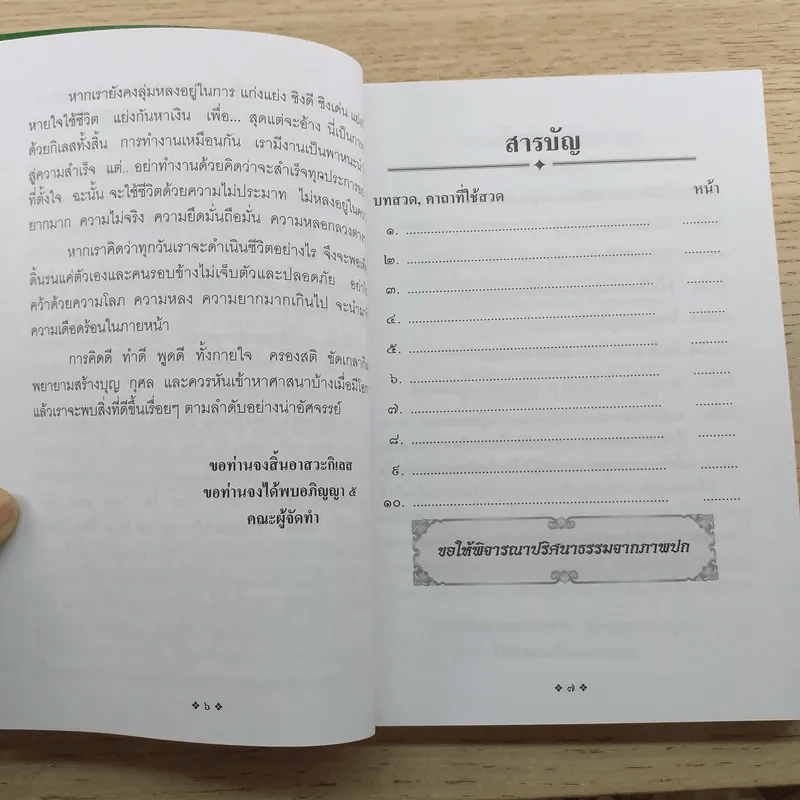 หากเรายังคงลุ่มหลงอยู่ในการ แก่งแย่ง ชิงดี ชิงเด่น
หายใจใช้ชีวิต แย่งกันหาเงิน เพื่อ... สุดแต่จะอ้าง นี่เป็นภาพ
ด้วยกิเลสทั้งสิ้น การทำงานเหมือนกัน เรามีงานเป็นพาหนะ
สู่ความสำเร็จ แต่.. อย่าทำงานด้วยคิดว่าจะสำเร็จทุกประการ
ที่ตั้งใจ ฉะนั้น จะใช้ชีวิตด้วยความไม่ประมาท ไม่หลงอยู่ใน
ยากมาก ความไม่จริง ความยึดมั่นถือมั่น ความหลอกลวงต่าง
หากเราคิดว่าทุกวันเราจะดำเนินชีวิตอย่างไร จึงจะ
ดิ้นรนแค่ตัวเองและคนรอบข้างไม่เจ็บตัวและปลอดภัย
คว้าด้วยความโลภ ความหลง ความยากมากเกินไป จะนำมา
ความเดือดร้อนในภายหน้า
การคิดดี ทำดี พูดดี ทั้งกายใจ ครองสติ ขัดเกลา
พยายามสร้างบุญ กุศล และควรหันเข้าหาศาสนาบ้างเมื่อมี
แล้วเราจะพบสิ่งที่ดีขึ้นเรื่อยๆ ตามลำดับอย่างน่าอัศจรรย์
ขอท่านจงสิ้นอาสวะกิเลส
ขอท่านจงได้พบอภิญญา ๕
คณะผู้จัดทำ
❖ ๖ ❖
สารบัญ
บทสวด, คาถาที่ใช้สวด หน้า
๑. .......................................................... ..........
๒. .......................................................... ..........
๓. .......................................................... ..........
๔. .......................................................... ..........
๕. .......................................................... ..........
๖. .......................................................... ..........
๗. .......................................................... ..........
๘. .......................................................... ..........
๙. .......................................................... ..........
๑๐. .......................................................... ..........
ขอให้พิจารณาปริศนาธรรมจากภาพปก
❖ ๗ ❖